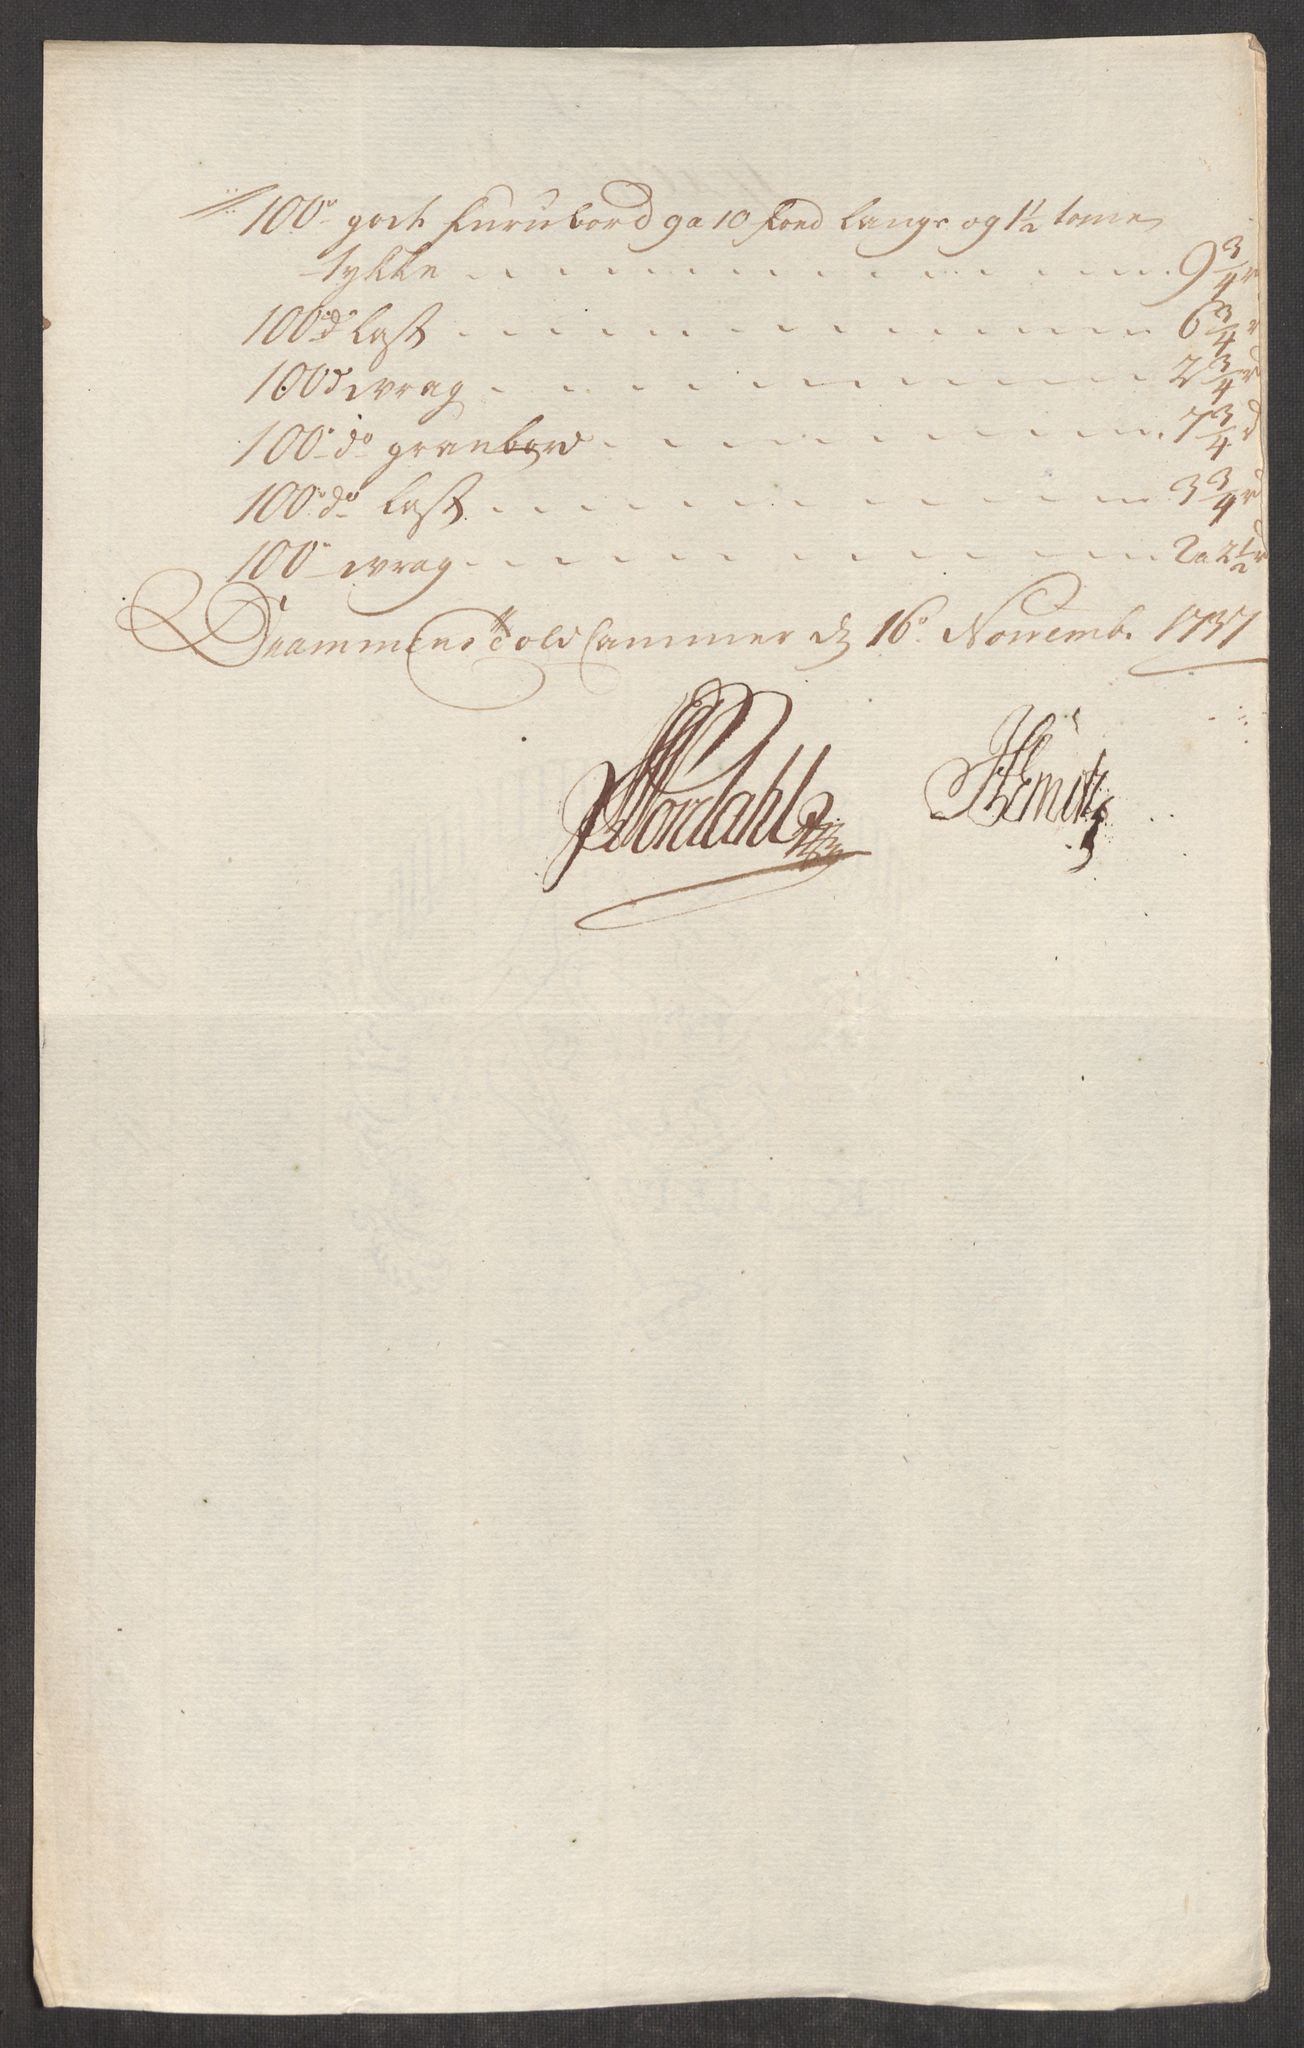 100de gode furubord ga 10 foed lange og 1½ tome
tykke 9¾ r
100 do last 6¾ r
100 do wrag 2¾ r
100 do granbord 7¾ rd
100 do last 3¾ rd
100de wrag 2 a 2½ r
Drammens Told Cammer d. 16o Novemb. 1717
Nordahl